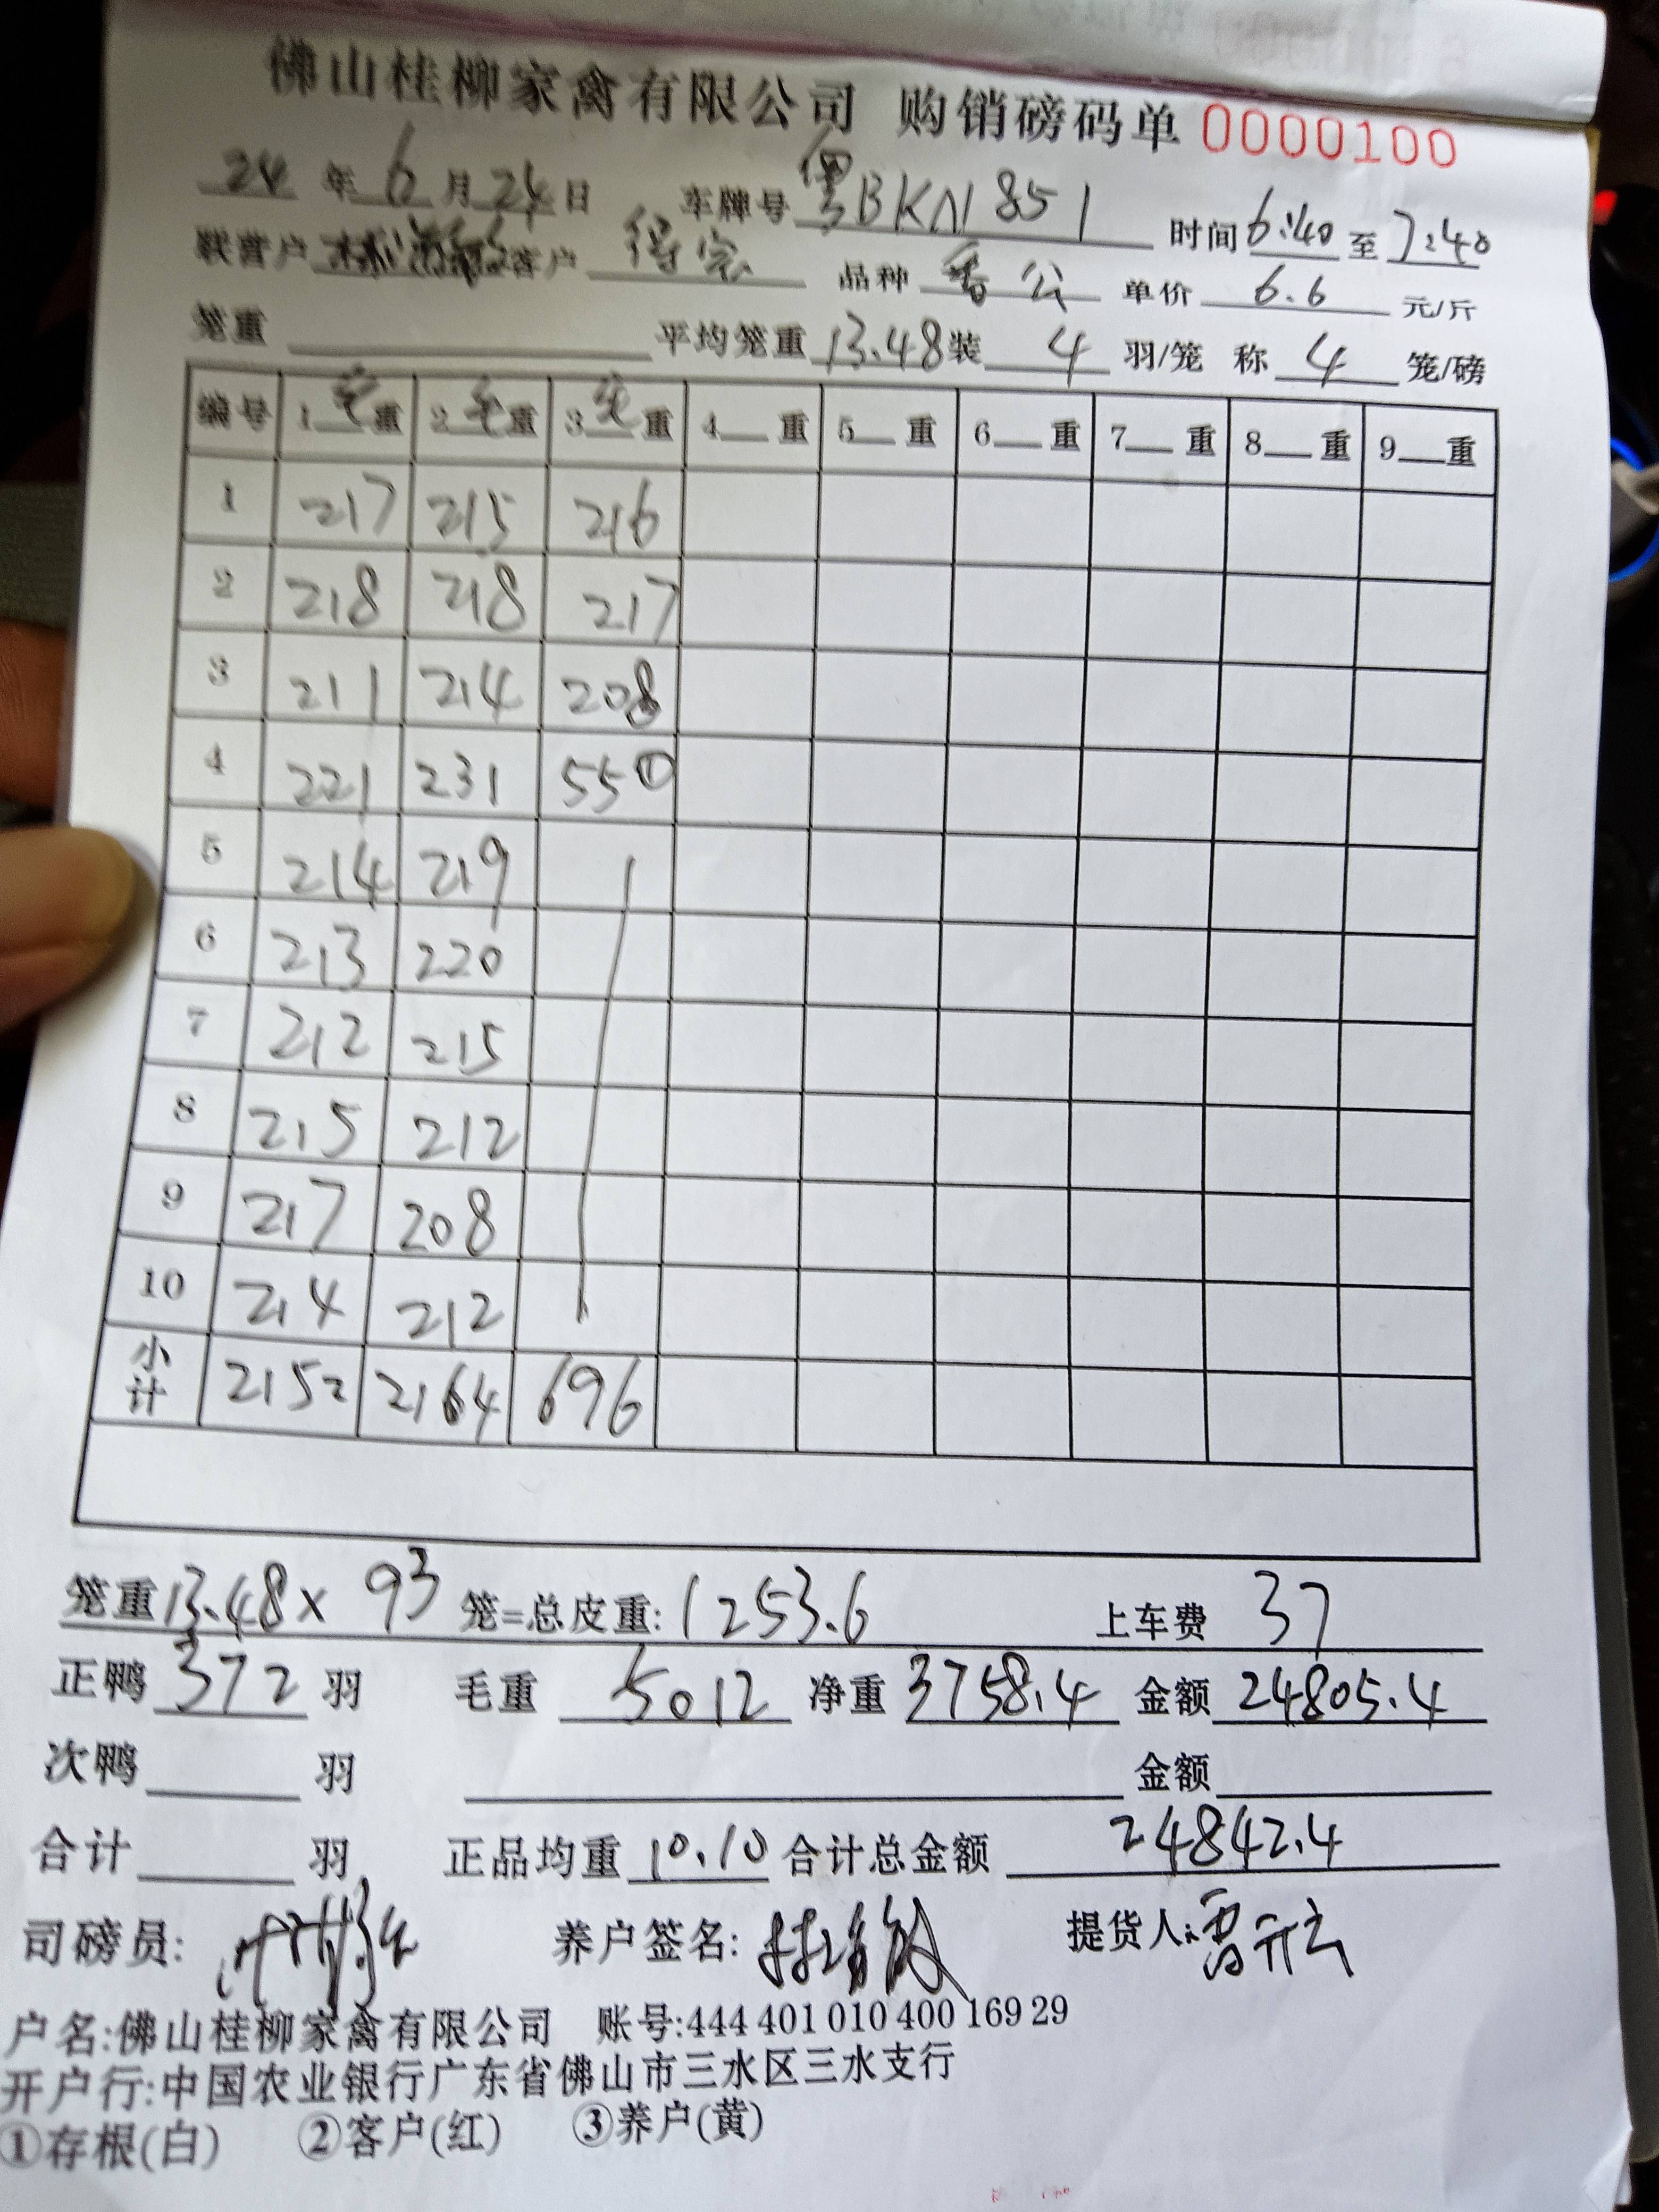 佛山桂柳家禽有限公司 购销磅码单 0000100
24 年 6 月 24 日 车牌号 粤BKN851 时间 6:40 至 7:40
联营户 客户 得宗 品种 番公 单价 6.6 元/斤
笼重 平均笼重 13.48 装 4 羽/笼 称 4 笼/磅
编号 1 毛 重 2 毛 重 3 毛 重 4 重 5 重 6 重 7 重 8 重 9 重
1 217 215 216
2 218 218 217
3 211 214 208
4 221 231 55①
5 214 219
6 213 220
7 212 215
8 215 212
9 217 208
10 214 212
小计 2152 2164 696
笼重 13.48 x 93 笼=总皮重: 1253.6 上车费 37
正鸭 372 羽 毛重 5012 净重 3758.4 金额 24805.4
次鸭 羽 金额
合计 羽 正品均重 10.10 合计总金额 24842.4
司磅员: 养户签名: 提货人:
户名:佛山桂柳家禽有限公司 账号:444 401 010 400 169 29
开户行:中国农业银行广东省佛山市三水区三水支行
①存根(白) ②客户(红) ③养户(黄)